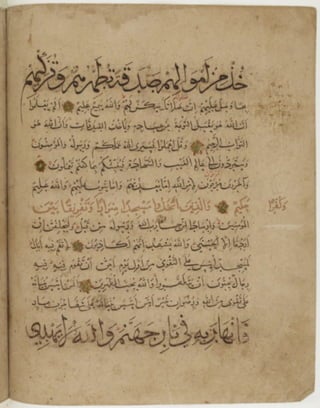 خذ من أموالهم صدقة تطهرهم وتزكيهم
بها وصل عليهم إن صلاتك سكن لهم والله سميع عليم ألم يعلموا
أن الله هو يقبل التوبة عن عباده ويأخذ الصدقات وأن الله هو
التواب الرحيم وقل اعملوا فسيرى الله عملكم ورسوله والمؤمنون
وستردون إلى عالم الغيب والشهادة فينبئكم بما كنتم تعملون
وآخرون مرجون لأمر الله إما يعذبهم وإما يتوب عليهم والله عليم
حكيم والذين اتخذوا مسجدا ضرارا وتفريقا بين
وكفرا
المؤمنين وإرصادا لمن حارب الله ورسوله من قبل وليحلفن إن
أردنا إلا الحسنى والله يشهد إنهم لكاذبون لا تقم فيه أبدا
لمسجد أسس على التقوى من أول يوم أحق أن تقوم فيه فيه
رجال يحبون أن يتطهروا والله يحب المطهرين أفمن أسس بنيانه
على تقوى من الله ورضوان خير أم من أسس بنيانه على شفا جرف هار
فانهار به في نار جهنم والله لا يهدي